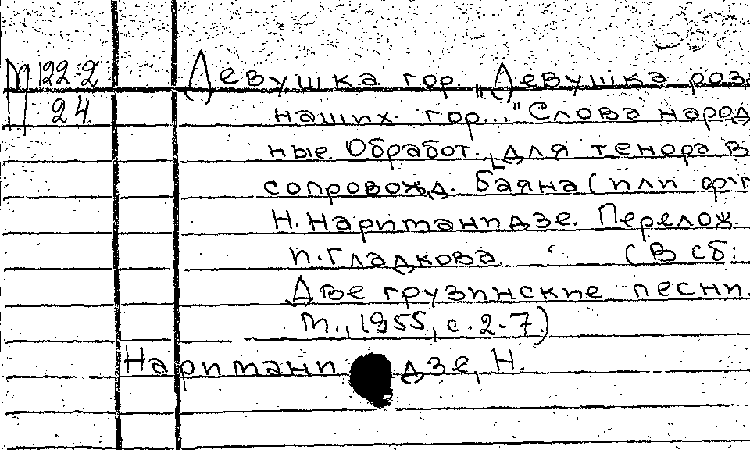 М 22-2 Девушка гор. „Девушка роз
П 24 наших гор..." Слова народ
ные. Обработ. для тенора в
сопровожд. баяна (или ф-п
Н. Нариманидзе. Перелож
П. Гладкова (В сб:
Две грузинские песни.
М., 1955, с. 2-7.)
Нариманидзе, Н.